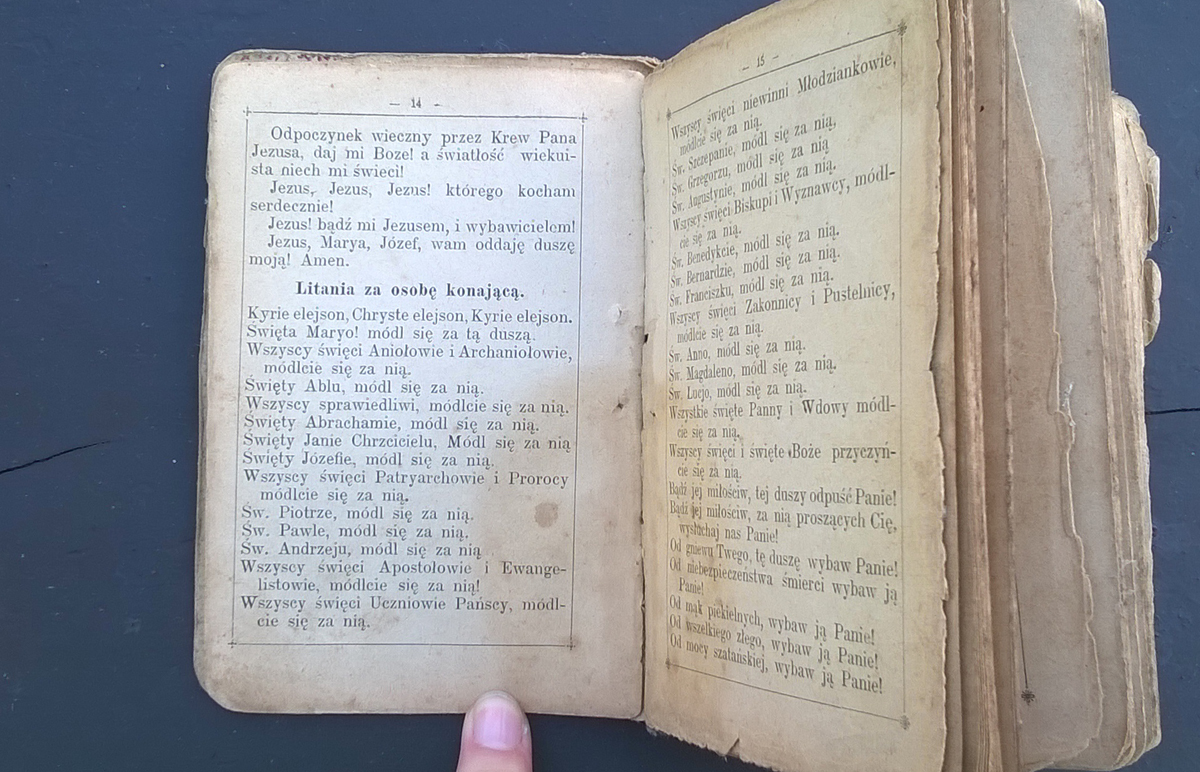 — 14 —
Odpoczynek wieczny przez Krew Pana
Jezusa, daj mi Boze! a światłość wiekui-
sta niech mi świeci!
Jezus, Jezus, Jezus! którego kocham
serdecznie!
Jezus! bądź mi Jezusem, i wybawicielem!
Jezus, Marya, Józef, wam oddaję duszę
moją! Amen.
Litania za osobę konającą.
Kyrie elejson, Chryste elejson, Kyrie elejson.
Święta Maryo! módl się za tą duszą.
Wszyscy święci Aniołowie i Archaniołowie,
módlcie się za nią.
Święty Ablu, módl się za nią.
Wszyscy sprawiedliwi, módlcie się za nią.
Święty Abrachamie, módl się za nią.
Święty Janie Chrzcicielu, Módl się za nią
Święty Józefie, módl się za nią.
Wszyscy święci Patryarchowie i Prorocy
módlcie się za nią.
Św. Piotrze, módl się za nią.
Św. Pawle, módl się za nią.
Św. Andrzeju, módl się za nią
Wszyscy święci Apostołowie i Ewange-
listowie, módlcie się za nią!
Wszyscy święci Uczniowie Pańscy, módl-
cie się za nią.
— 15 —
Wszyscy święci niewinni Młodziankowie,
módlcie się za nią.
Św. Szczepanie, módl się za nią,
Św. Grzegorzu, módl się za nią
Św. Augustynie, módl się za nią.
Wszyscy święci Biskupi i Wyznawcy, módl-
cie się za nią.
Św. Benedykcie, módl się za nią.
Św. Bernardzie, módl się za nią.
Św. Franciszku, módl się za nią.
Wszyscy święci Zakonnicy i Pustelnicy,
módlcie się za nią.
Św. Anno, módl się za nią.
Św. Magdaleno, módl się za nią.
Św. Lucjo, módl się za nią.
Wszystkie święte Panny i Wdowy módl-
cie się za nią.
Wszyscy święci i święte Boże przyczyń-
cie się za nią.
Bądź jej miłościw, tej duszy odpuść Panie!
Bądź jej miłościw, za nią proszących Cię,
wysłuchaj nas Panie!
Od gniewu Twego, tę duszę wybaw Panie!
Od niebezpieczeństwa śmierci wybaw ją
Panie!
Od mąk piekielnych, wybaw ją Panie!
Od wszelkiego złego, wybaw ją Panie!
Od mocy szatańskiej, wybaw ją Panie!